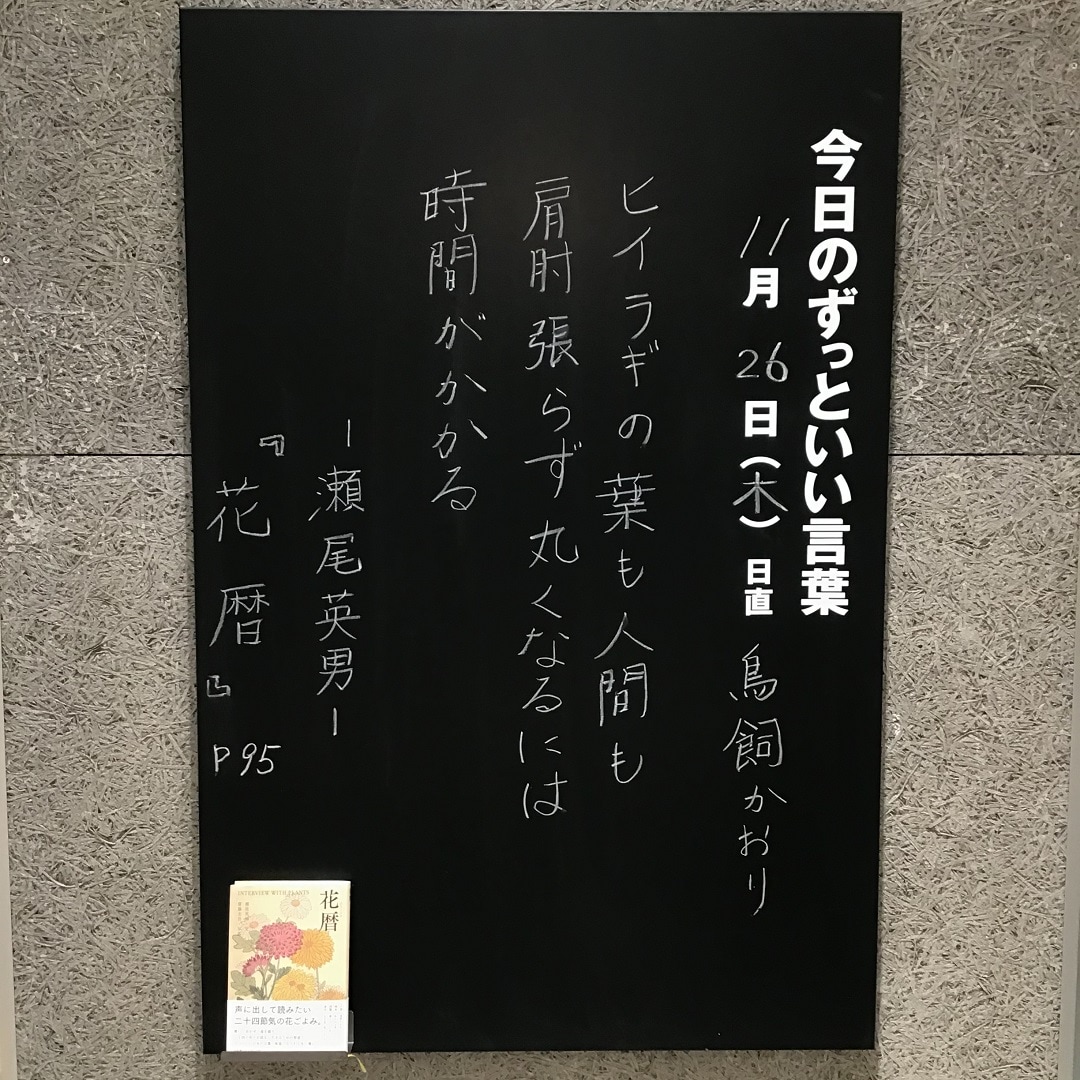 今日のずっといい言葉
11月26日(木) 日直 鳥飼かおり
ヒイラギの葉も人間も
肩肘張らず丸くなるには
時間がかかる
ー瀬尾英男ー
『花暦』P95
INTERVIEW WITH PLANTS
花暦
声に出して読みたい
二十四節気の花ごよみ。